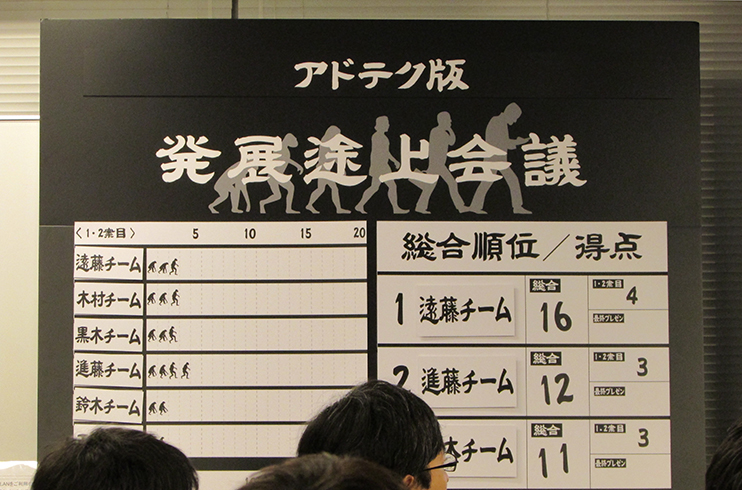 アドテク版
発展途上会議
〈1・2案目〉 5 10 15 20
遠藤チーム
木村チーム
黒木チーム
進藤チーム
鈴木チーム
総合順位／得点
1 遠藤チーム 総合 16 1・2案目 4 最終プレゼン
2 進藤チーム 総合 12 1・2案目 3 最終プレゼン
木チーム 総合 11 1・2案目 3 最終プレゼン